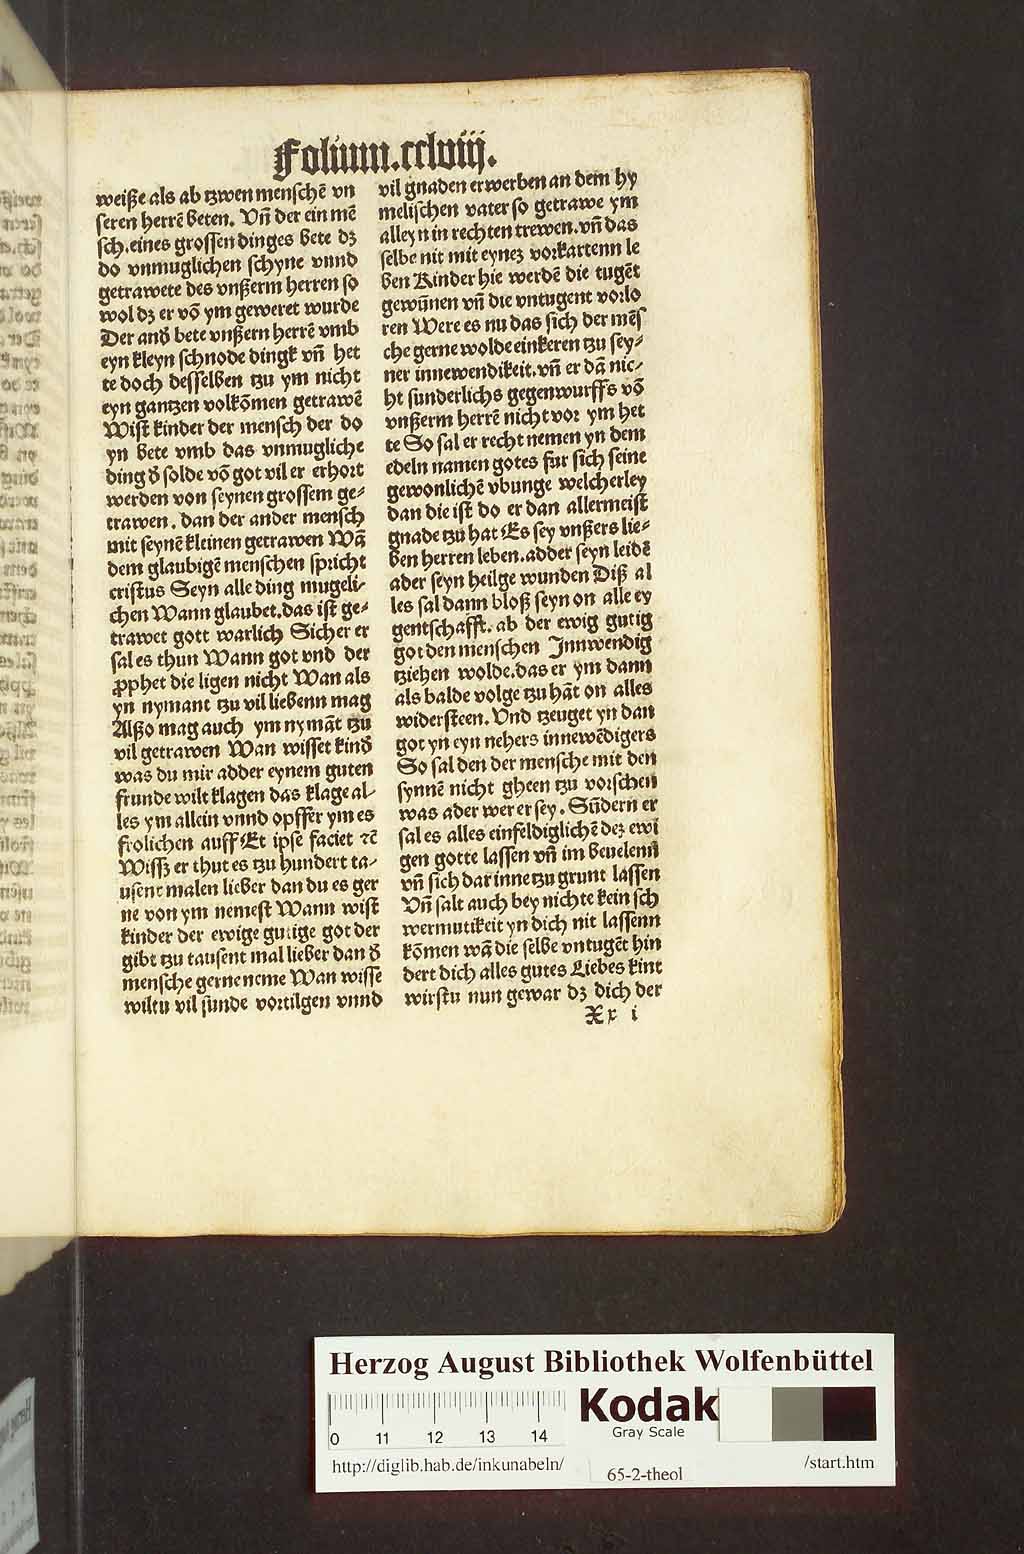 Folium.cclviij.
weiße als ab tzwen menschē vn
seren herrē beten. Vn̄ der ein mē
sch.eines grossen dinges bete dz
do vnmuglichen schyne vnnd
getrawete des vnßerm herren so
wol dz er vō ym geweret wurde
Der and̕ bete vnßern herrē vmb
eyn kleyn schnode dingk vn̄ het
te doch desselben tzu ym nicht
eyn gantzen volkōmen getrawē
Wist kinder der mensch der do
yn bete vmb das vnmugliche
ding d̕ solde vō got vil er erhort
werden von seynen grossem ge⸗
trawen. dan der ander mensch
mit seynē kleinen getrawen Wā
dem glaubigē menschen spricht
cristus Seyn alle ding mugeli⸗
chen Wann glaubet.das ist ge⸗
trawet gott warlich Sicher er
sal es thun Wann got vnd der
ꝓphet die ligen nicht Wan als
yn nymant tzu vil liebenn mag
Alßo mag auch ym nymāt tzu
vil getrawen Wan wisset kind̕
was du mir adder eynem guten
frunde wilt klagen das klage al⸗
les ym allein vnnd opffer ym es
frolichen auff Et ipse faciet ⁊c̄
Wiss er thut es tzu hundert ta⸗
usent malen lieber dan du es ger
ne von ym nemest Wann wist
kinder der ewige gutige got der
gibt tzu tausent mal lieber dan d̕
mensche gerne neme Wan wisse
wiltu vil sunde vortilgen vnnd
vil gnaden erwerben an dem hy
melischen vater so getrawe ym
alleyn in rechten trewen.vn̄ das
selbe nit mit eynez vorkartenn le
ben Kinder hie werdē die tugēt
gewūnen vn̄ die vntugent vorlo
ren Were es nu das sich der mēs
che gerne wolde einkeren tzu sey⸗
ner innewendikeit.vn̄ er dā nic⸗
ht sunderlichs gegenwurffs vō
vnßerm herrē nicht vor ym het
te So sal er recht nemen yn dem
edeln namen gotes fur sich seine
gewonlichē vbunge welcherley
dan die ist do er dan allermeist
gnade tzu hat Es sey vnßers lie⸗
ben herren leben.adder seyn leidē
ader seyn heilge wunden Diß al
les sal dann bloß seyn on alle ey
gentschafft. ab der ewig gutig
got den menschen Innwendig
tziehen wolde.das er ym dann
als balde volge tzu hāt on alles
widersteen. Vnd tzeuget yn dan
got yn eyn nehers innewēdigers
So sal den der mensche mit den
synnē nicht gheen tzu vorschen
was ader wer er sey. Sūdern er
sal es alles einfeldiglichē dez ewi
gen gotte lassen vn̄ im beuelenn
vn̄ sich dar inne tzu grunt lassen
Vn̄ salt auch bey nichte kein sch
wermutikeit yn dich nit lassenn
kōmen wā die selbe vntugēt hin
dert dich alles gutes Liebes kint
wirstu nun gewar dz dich der
Xx i
Herzog August Bibliothek Wolfenbüttel
Kodak
Gray Scale
0 11 12 13 14
http://diglib.hab.de/inkunabeln/
65-2-theol
/start.htm